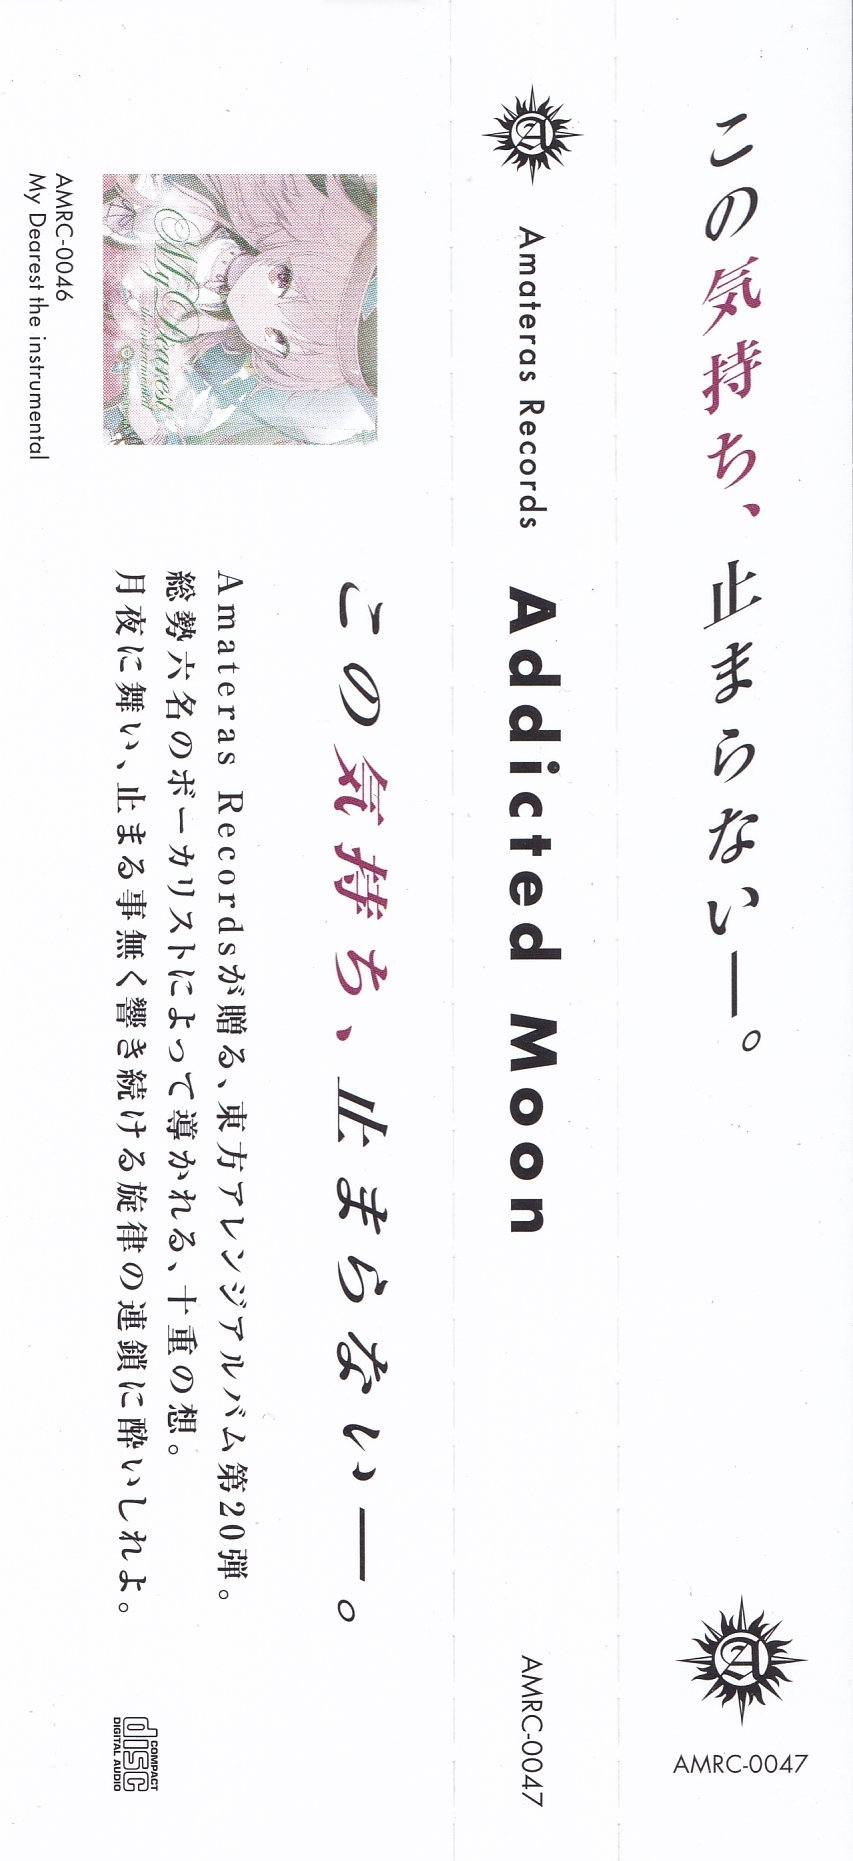 この気持ち、止まらない―。
AMRC-0047
Amateras Records
Addicted Moon
AMRC-0047
この気持ち、止まらない―。
Amateras Recordsが贈る、東方アレンジアルバム第20弾。
総勢六名のボーカリストによって導かれる、十重の想。
月夜に舞い、止まる事無く響き続ける旋律の連鎖に酔いしれよ。
My Dearest
the instrumental
AMRC-0046
My Dearest the instrumental
COMPACT
disc
DIGITAL AUDIO